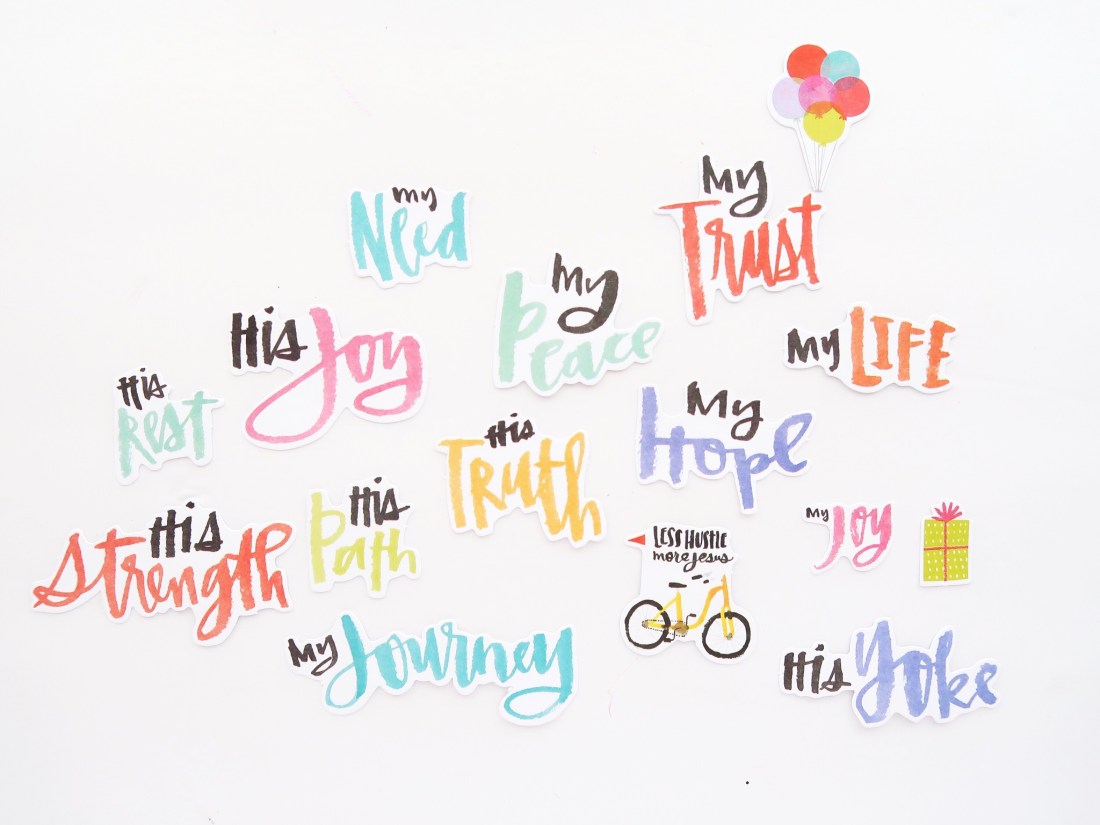 my
Need
My
Trust
My
Peace
His
Joy
My LIFE
His
Rest
My
Hope
His
Truth
His
Strength
His
Path
LESS HUSTLE
more jesus
My
Joy
My Journey
His Yoke